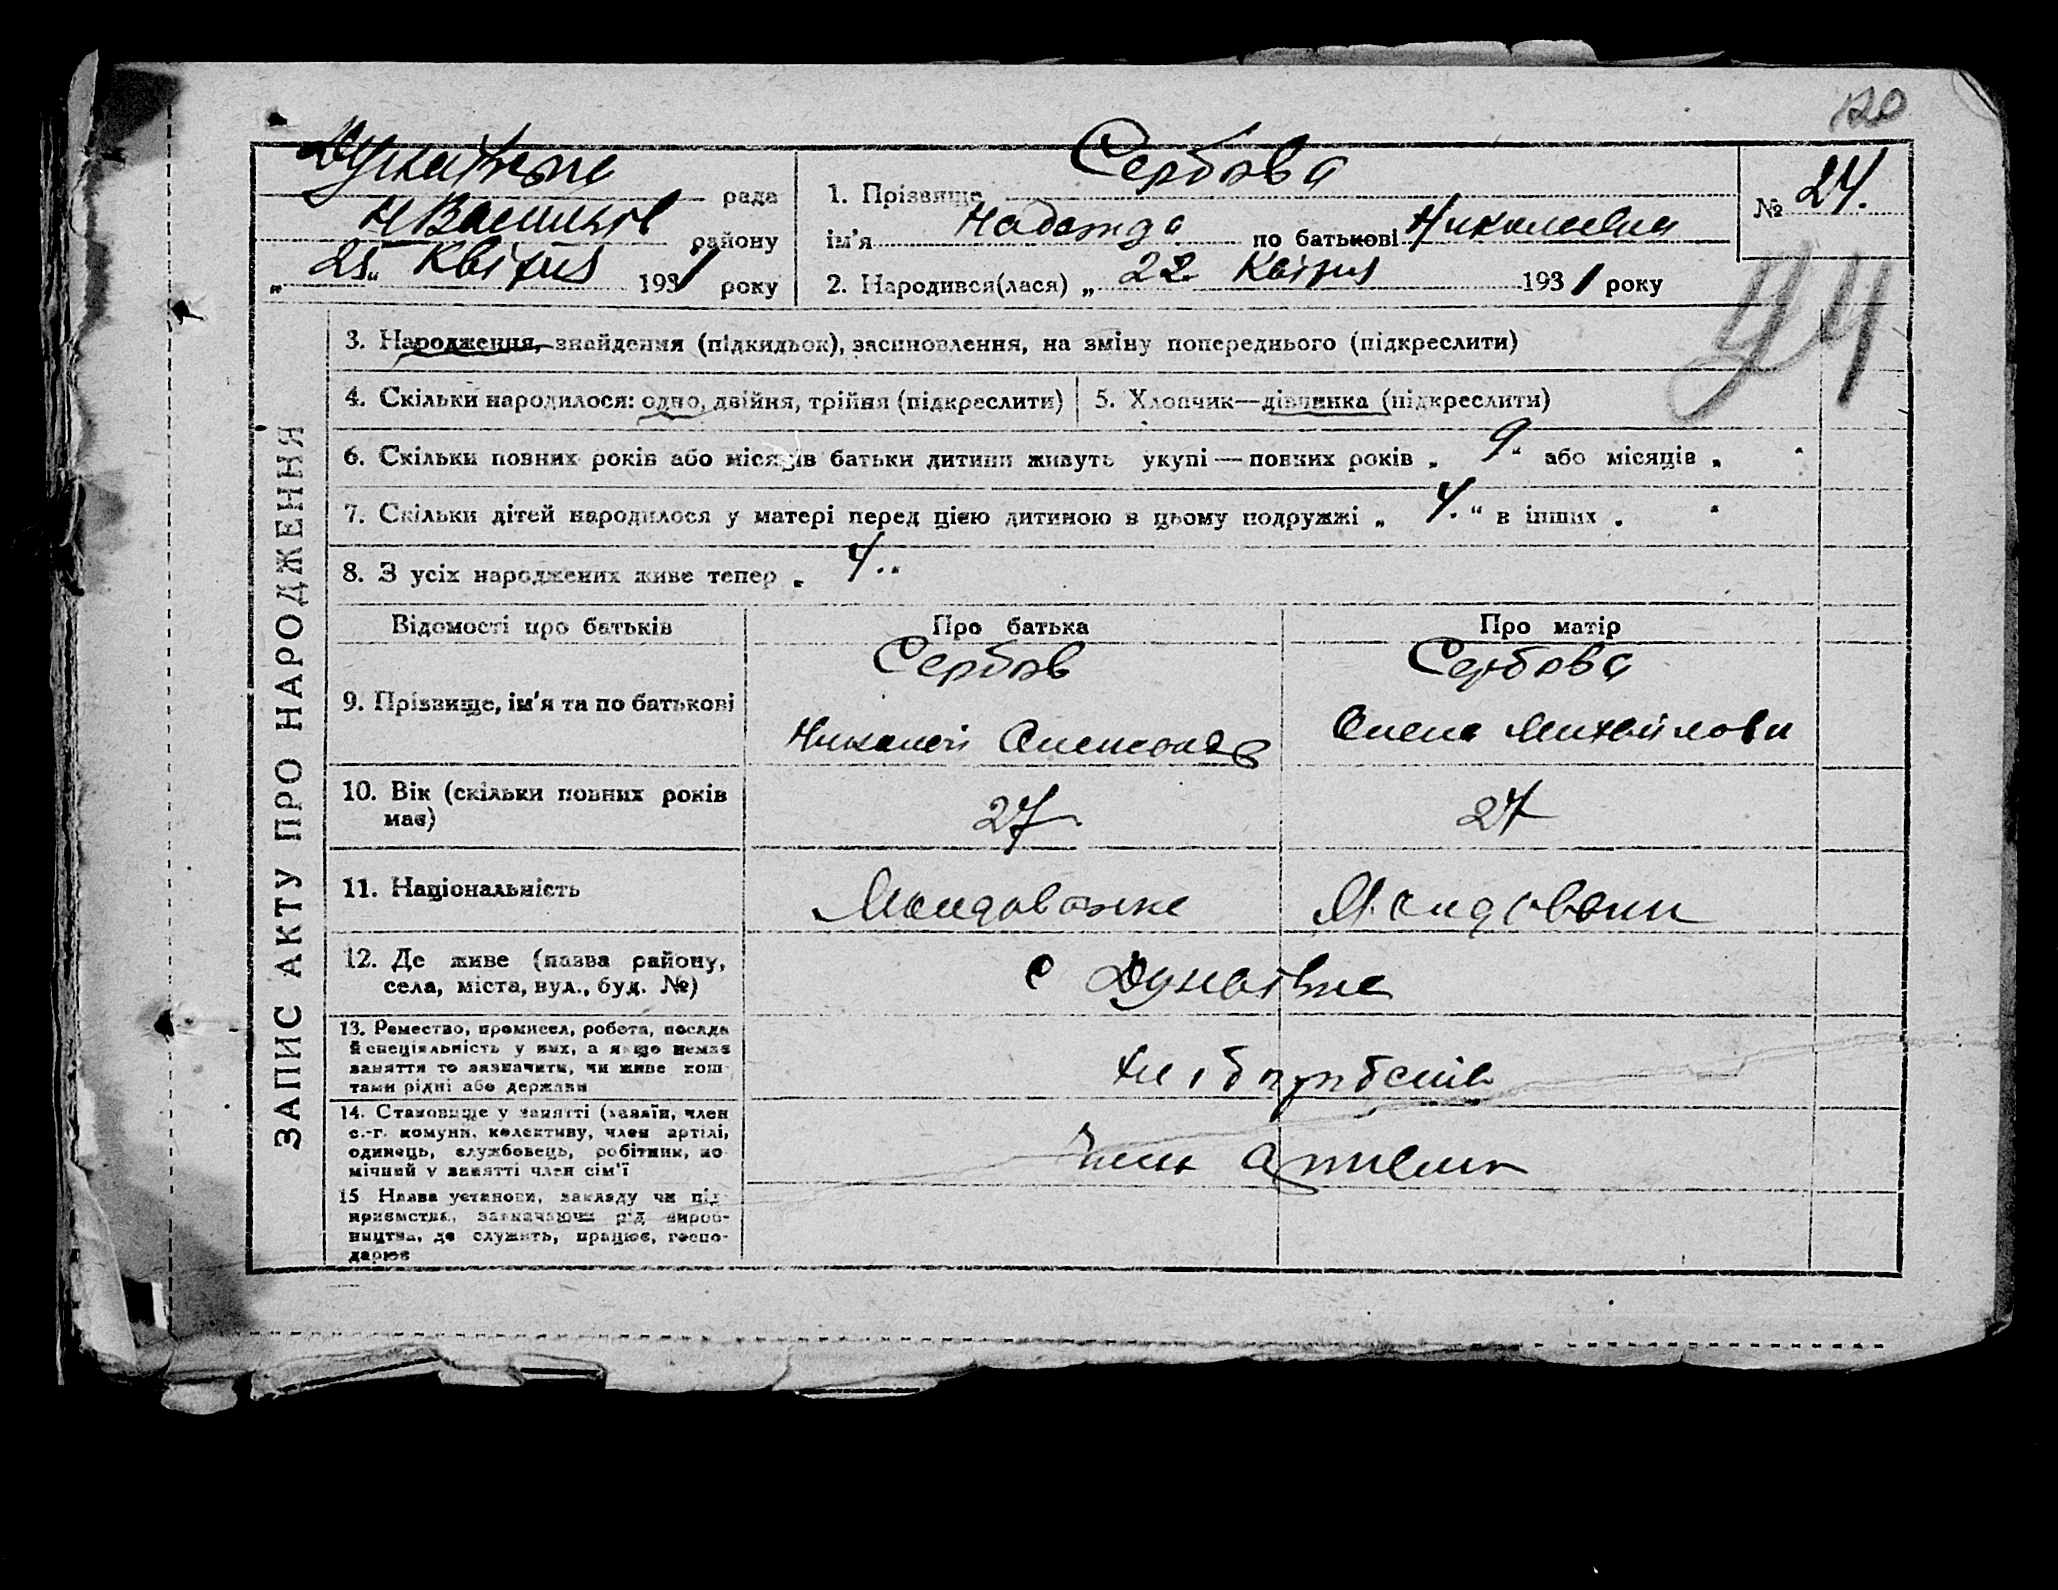 120
рада
НВасильїв району
„25“ Квітня 1931 року
1. Прізвище Сербова
ім'я Надежда по батькові Николаевна
2. Народився(лася) „22 Квітня 1931 року
№ 24.
24
ЗАПИС АКТУ ПРО НАРОДЖЕННЯ
3. Народження, знайдення (підкидьок), засиновлення, на зміну попереднього (підкреслити)
4. Скільки народилося: одно, двійня, трійня (підкреслити)
5. Хлопчик—дівчинка (підкреслити)
6. Скільки повних років або місяців батьки дитини живуть укупі—повних років „9“ або місяців „ “
7. Скільки дітей народилося у матері перед цією дитиною в цьому подружжі „4.“ в інших „ “
8. З усіх народжених живе тепер „4“
Відомості про батьків
Про батька
Про матір
9. Прізвище, ім'я та по батькові
Сербов
Николай
Сербова
Олена Михайловн
10. Вік (скільки повних років
має)
27
27
11. Національність
Молдованне
Молдовани
12. Де живе (назва району,
села, міста, вул., буд. №)
с
13. Ремество, промисел, робота, посада
й спеціяльність у них, а якщо немає
заняття то зазначити, чи живе кош-
тами рідні або держави
хліборобств
14. Становище у занятті (хазяїн, член
с.-г. комуни, колективу, член артілі,
одинець, службовець, робітник, по-
мічний у занятті член сім'ї
Член артели
15 Назва установи, закладу чи під-
приємства, зазначаючи рід вироб-
ництва, де служить, працює, госпо-
дарює